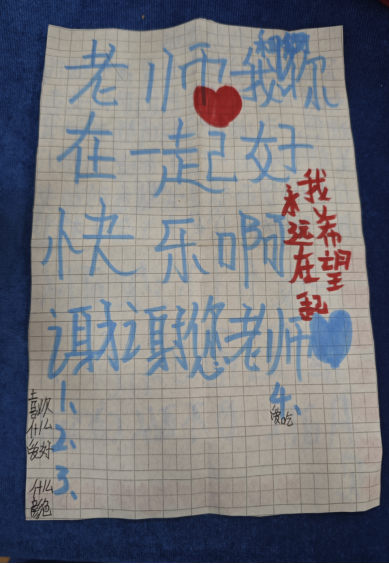 老师我和你
在一起好
快乐啊
谢谢您老师
我希望
永远在
起
1、
2、
3、
4、
喜欢
什么
爱好
什么
颜色
爱吃